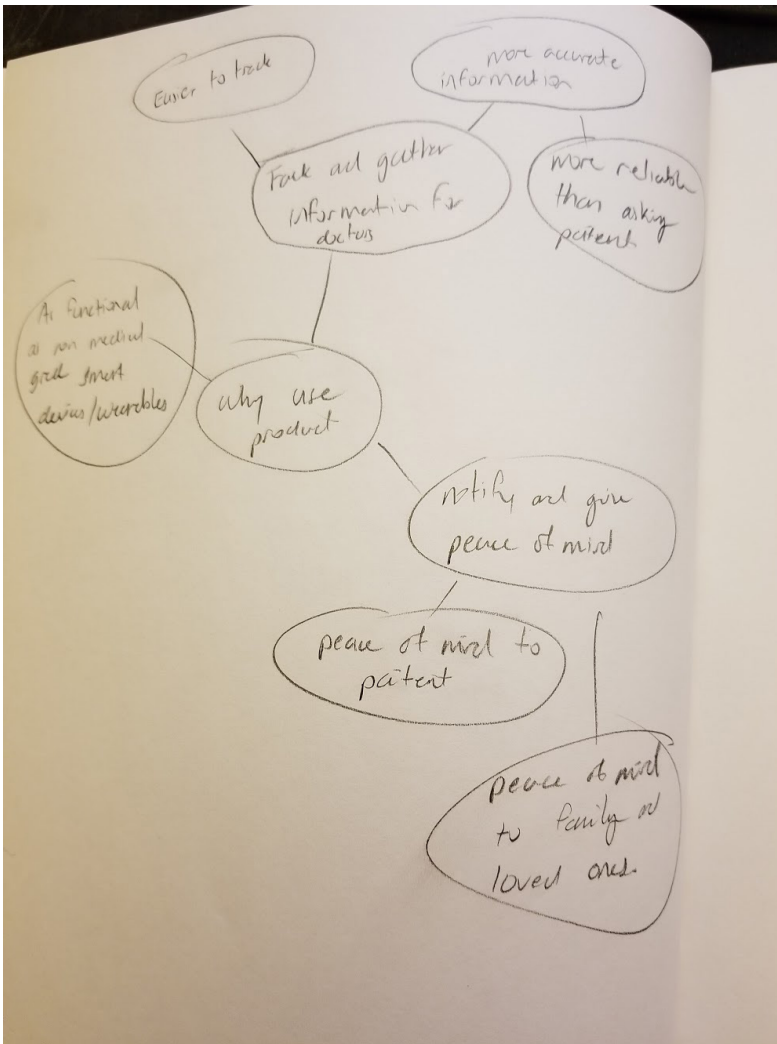 Easier to track
more accurate
information
Track and gather
information for
doctors
more reliable
than asking
patient
As functional
as non medical
grade smart
devices/wearables
why use
product
notify and give
peace of mind
peace of mind to
patient
peace of mind
to family and
loved ones.